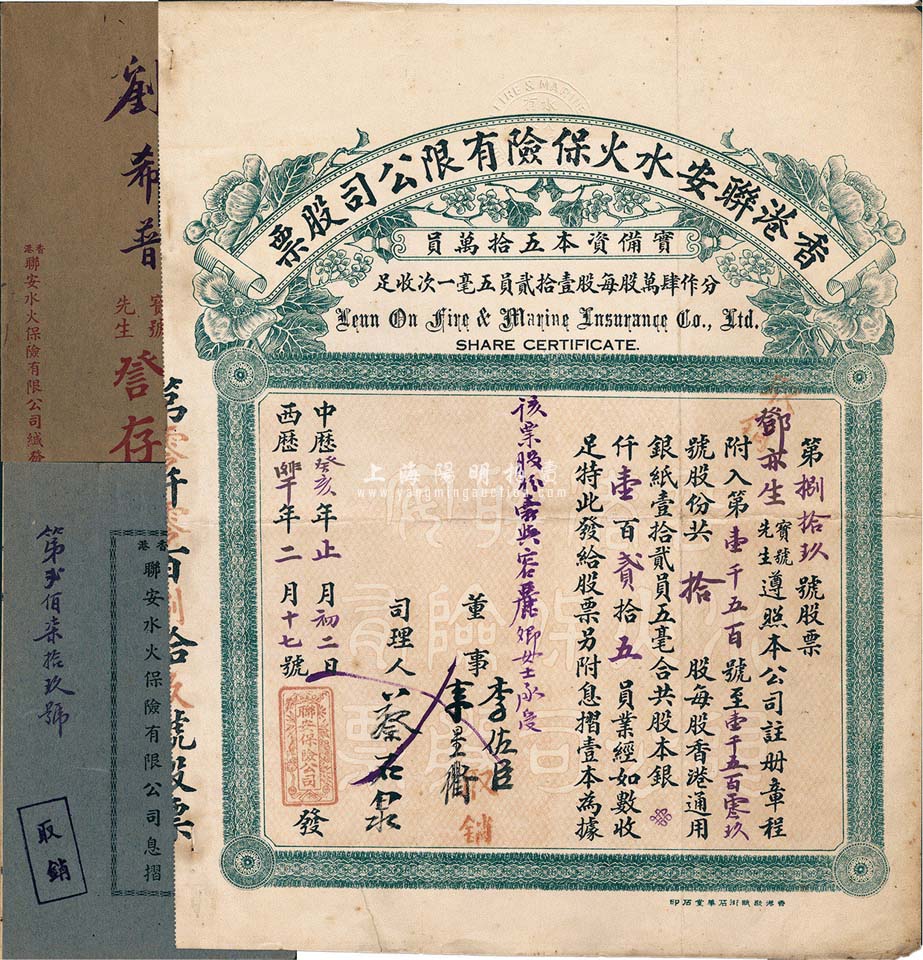 香港聯安水火保險有限公司股票
實備資本五拾萬員
分作肆萬股每股壹拾貳員五毫一次收足
Leun On Fire & Marine Insurance Co., Ltd.
SHARE CERTIFICATE.
第捌拾玖號股票
鄧亦生寶號先生遵照本公司註册章程
附入第壹千五百號至壹千五百零玖
號股份共拾股每股香港通用
銀紙壹拾貳員五毫合共股本銀
仟壹百貳拾五員業經如數收
足特此發給股票另附息摺壹本為據
該票股份
女士承受
董事李佐臣
司理人蔡石泉
中歷癸亥年正月初二日
西歷年二月十七號
發
聯安保險公司
取銷
香港
印石堂華
第零仟零百捌拾玖號股票
劉希普
寶號先生
詧存
香港聯安水火保險有限公司緘
香港聯安水火保險有限公司息摺
第弍佰柒拾玖號
取銷
FIRE & MARINE
上海陽明拍賣
www.yangmingauction.com